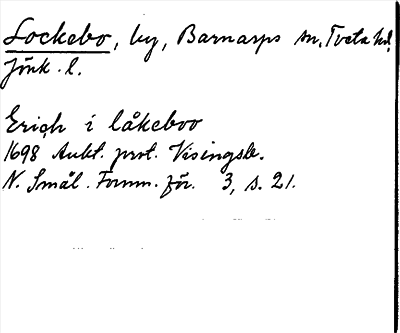 Lockebo, by, Barnarps sn, Tveta hd,
Jönk. l.
Erich i låkeboo
1698 Aukt. prot. Visingsb.
N. Smål. Fornm.för. 3, s. 21.